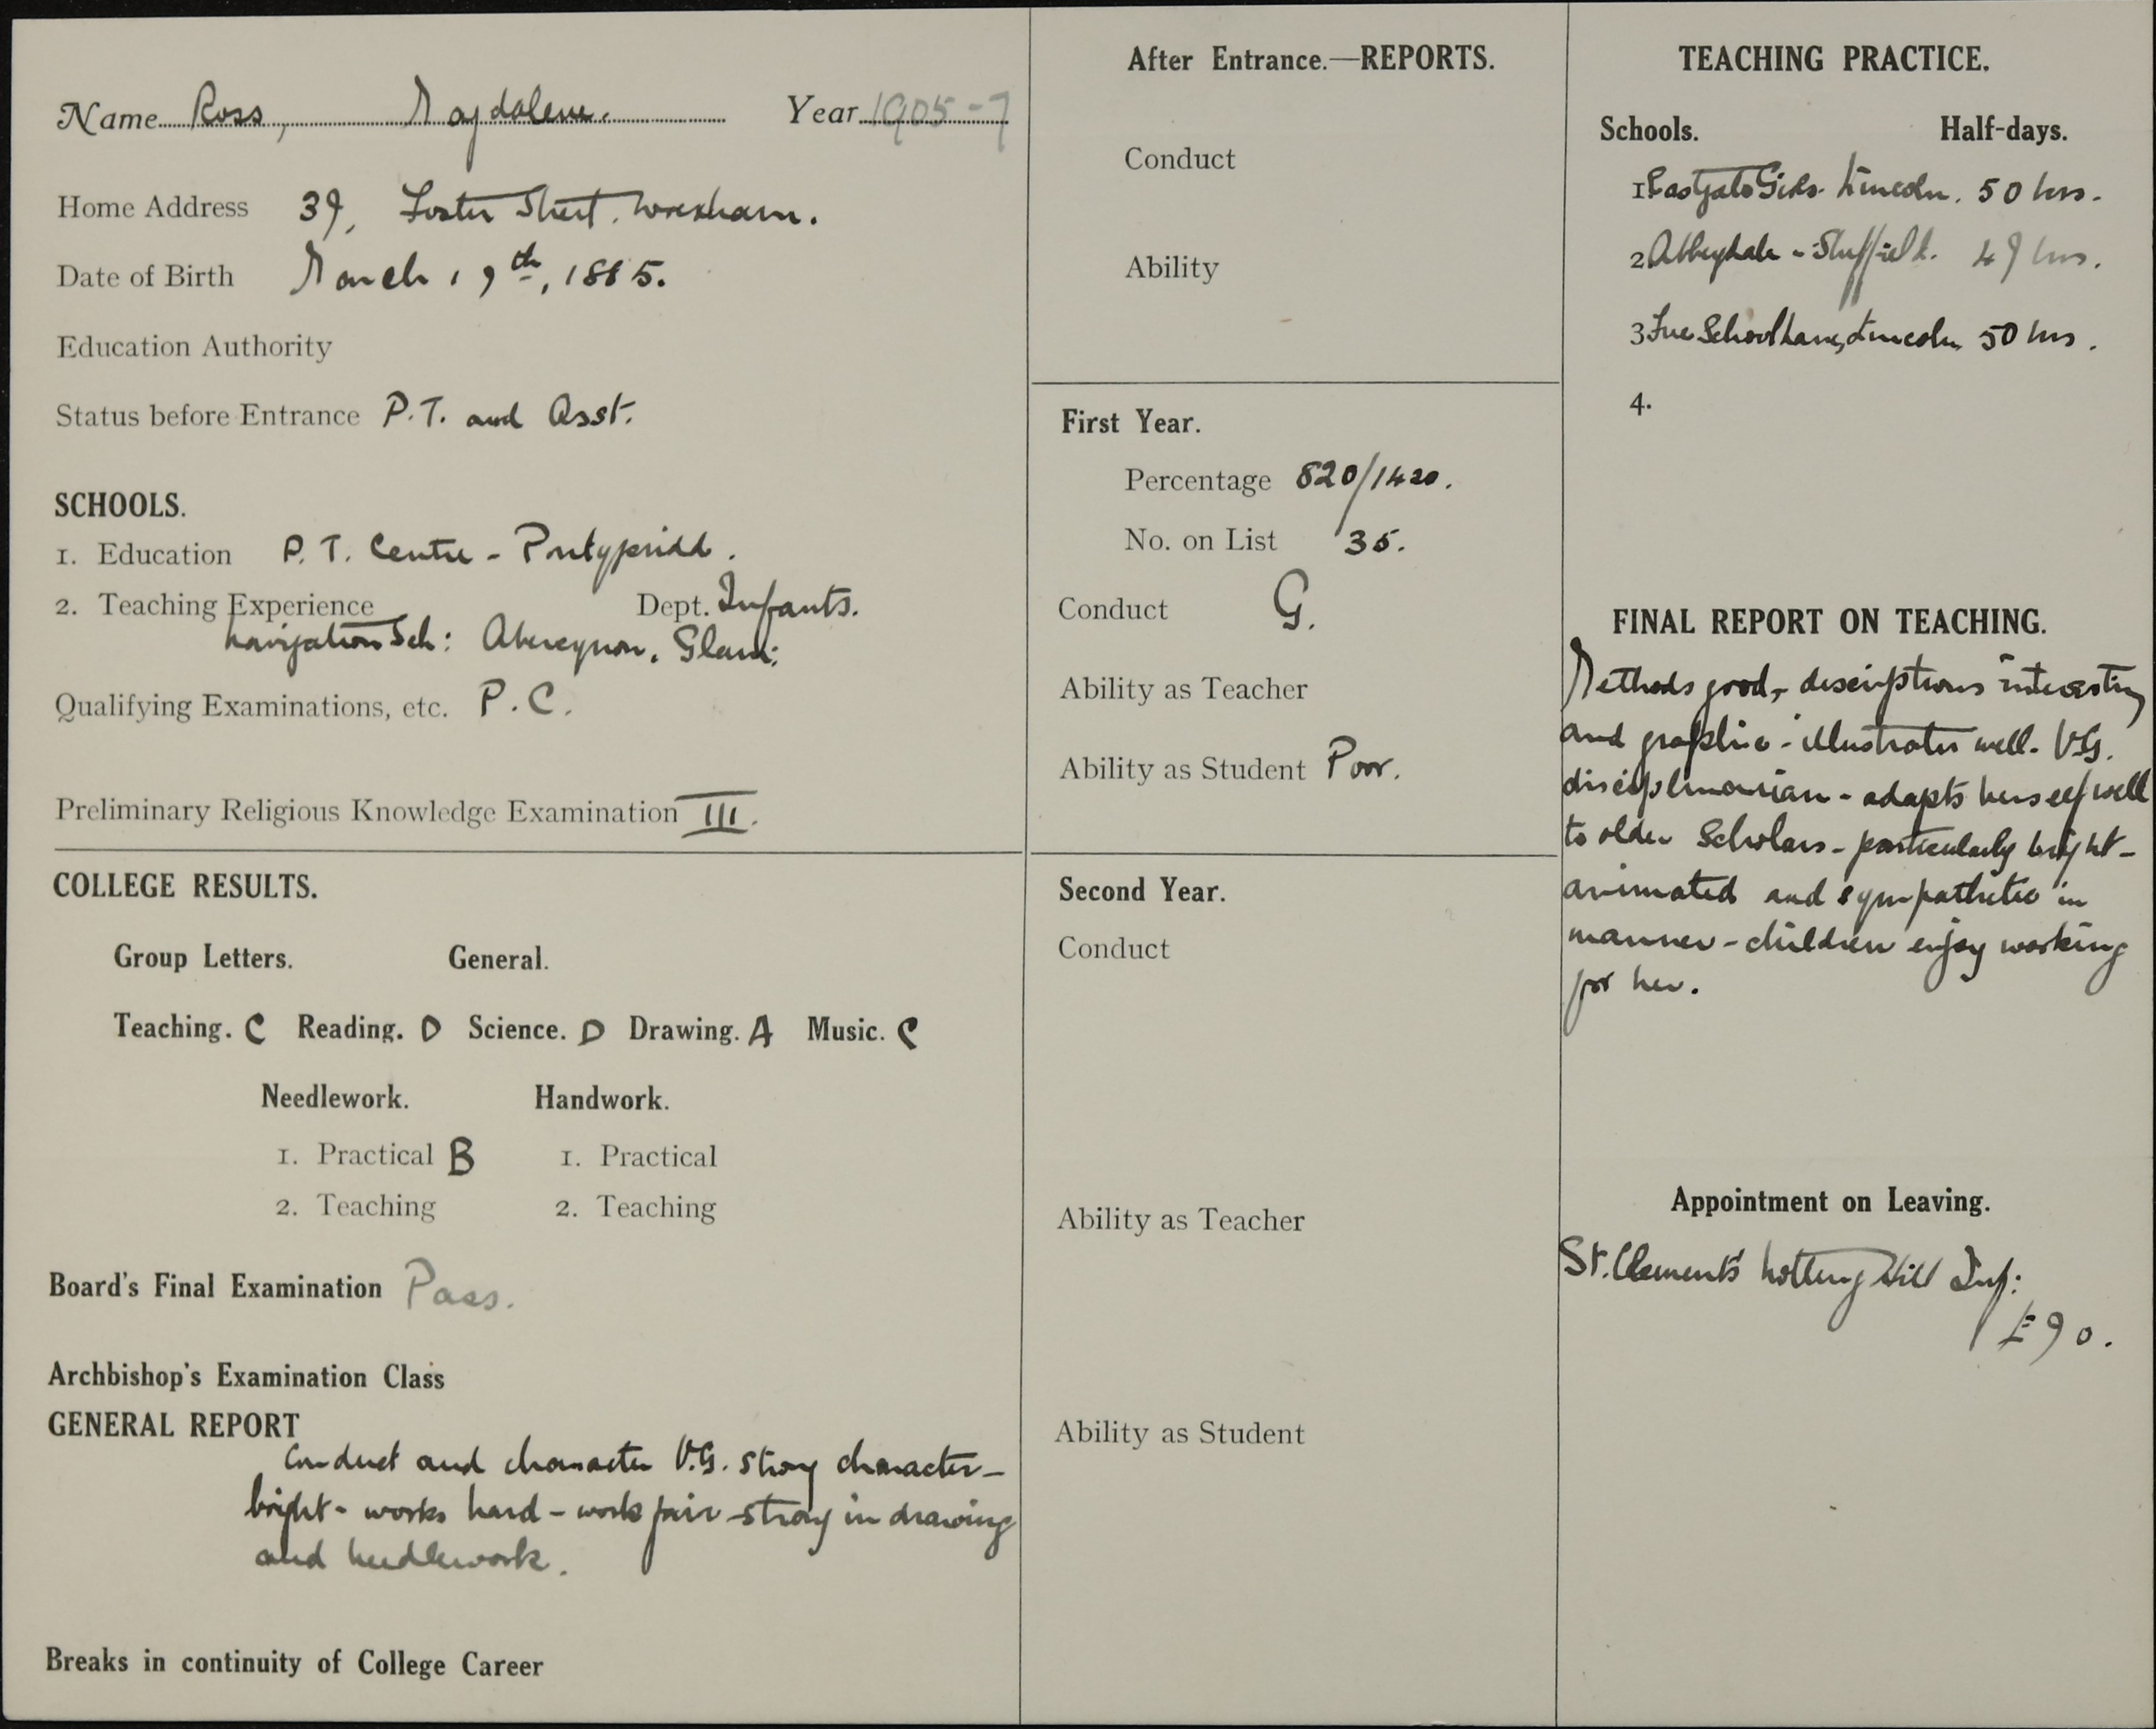 Name Ross, Magdalene. Year 1905-7
Home Address 39, Foster Street. Wrexham.
Date of Birth March 19th, 1885.
Education Authority
Status before Entrance P.T. and Asst.
SCHOOLS.
1. Education P.T. Centre - Pontypridd.
2. Teaching Experience Dept. Infants.
Navigation Sch: Abercynon. Glam:
Qualifying Examinations, etc. P.C.
Preliminary Religious Knowledge Examination III.
COLLEGE RESULTS.
Group Letters. General.
Teaching. C Reading. D Science. D Drawing. A Music. C
Needlework. Handwork.
1. Practical B 1. Practical
2. Teaching 2. Teaching
Board's Final Examination Pass.
Archbishop's Examination Class
GENERAL REPORT
Conduct and character V.G. strong character -
bright - works hard - work fair - strong in drawing
and needlework.
Breaks in continuity of College Career
After Entrance.—REPORTS.
Conduct
Ability
First Year.
Percentage 820/1420.
No. on List 35.
Conduct G.
Ability as Teacher
Ability as Student Poor.
Second Year.
Conduct
Ability as Teacher
Ability as Student
TEACHING PRACTICE.
Schools. Half-days.
1 Eastgate Girls. Lincoln. 50 hrs.
2 Abbeydale - Sheffield. 49 hrs.
3 Free School Lane, Lincoln 50 hrs.
4.
FINAL REPORT ON TEACHING.
Methods good, descriptions interesting
and graphic - illustrates well. V.G.
disciplinarian - adapts herself well
to older Scholars - particularly bright -
animated and sympathetic in
manner - children enjoy working
for her.
Appointment on Leaving.
St. Clement's Notting Hill Inf:
£90.